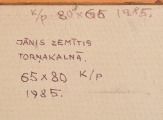 K/P. 80 x 65 1985.
JĀNIS ZEMĪTIS
TORŅAKALNĀ.
65 x 80 K/P
1985.